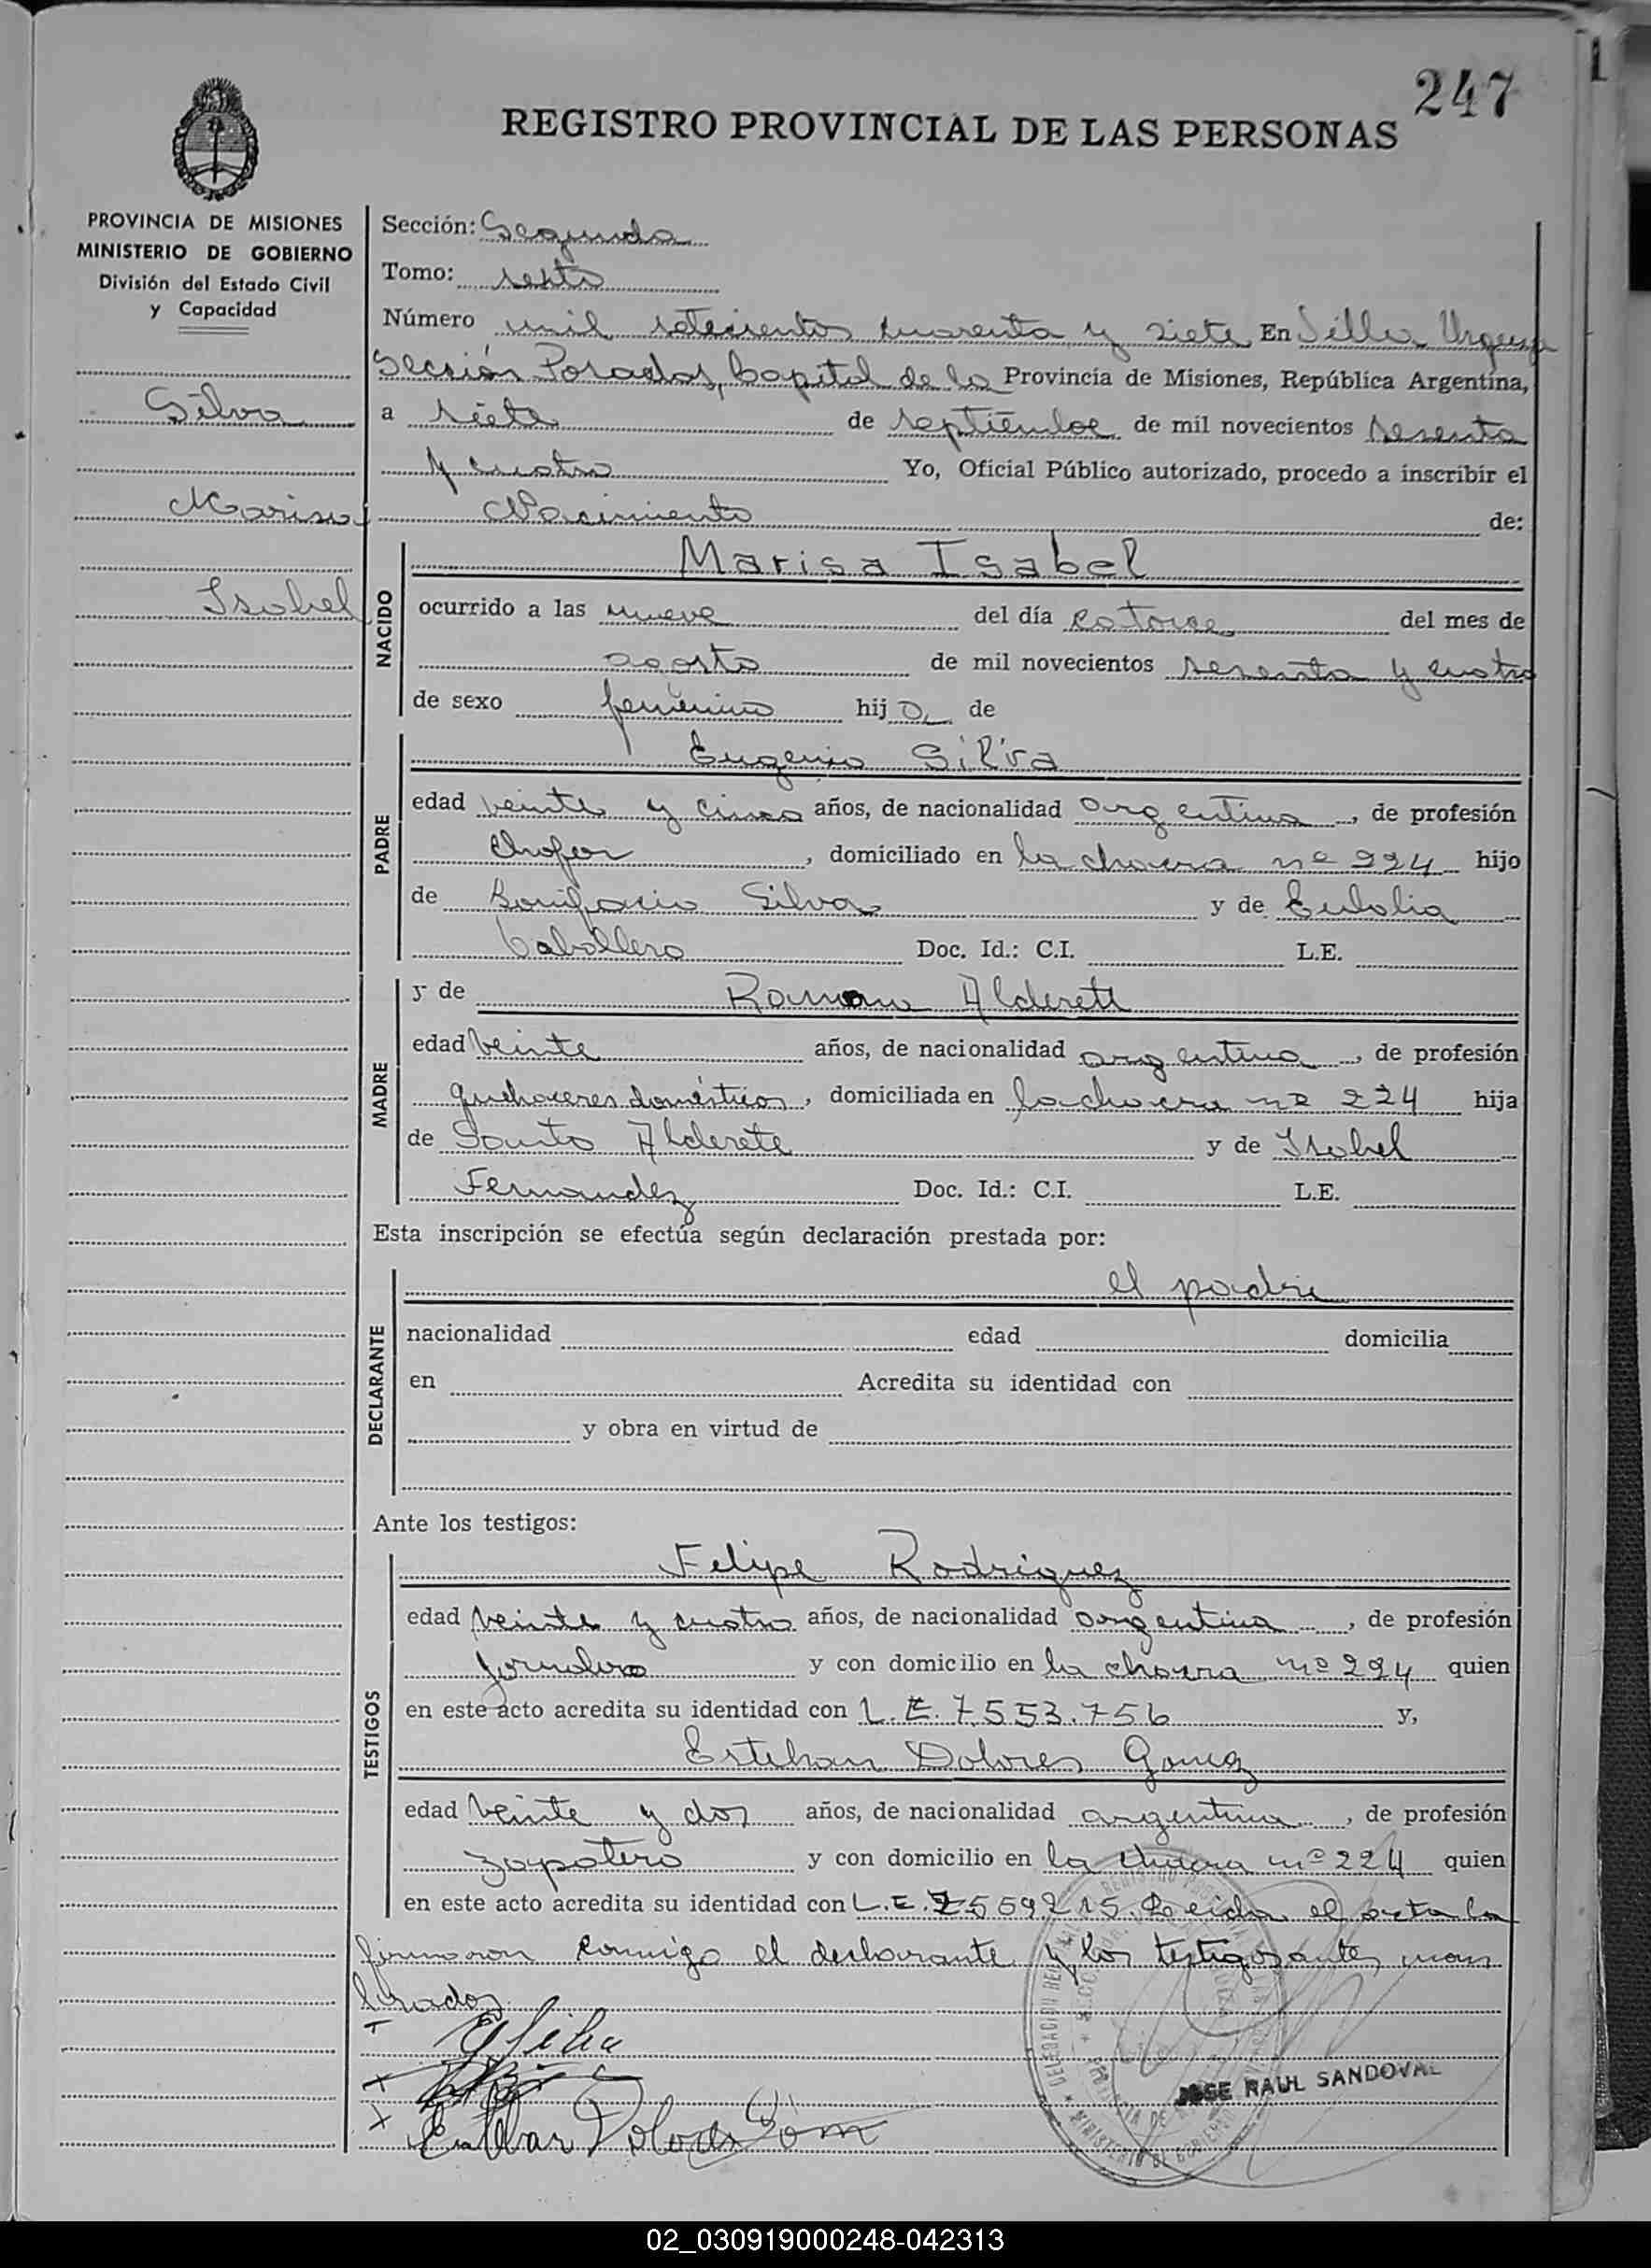 247
REGISTRO PROVINCIAL DE LAS PERSONAS
PROVINCIA DE MISIONES
MINISTERIO DE GOBIERNO
División del Estado Civil
y Capacidad
Silva
Marisa
Isabel
Sección: Segunda
Tomo: sexto
Número mil setecientos cuarenta y siete En Villa Urquiza
Sección Posadas, Capital de la Provincia de Misiones, República Argentina,
a siete de septiembre de mil novecientos sesenta
y cuatro Yo, Oficial Público autorizado, procedo a inscribir el
Nacimiento de:
NACIDO
Marisa Isabel
ocurrido a las nueve del día catorce del mes de
agosto de mil novecientos sesenta y cuatro
de sexo femenino hija de
PADRE
Eugenio Silva
edad veinte y cinco años, de nacionalidad argentina, de profesión
Chofer, domiciliado en la chacra nº 224 hijo
de Bonifacio Silva y de Eulalia
Caballero Doc. Id.: C.I. L.E.
MADRE
y de Alderete
edad veinte años, de nacionalidad argentina, de profesión
quehaceres domésticos, domiciliada en la chacra nº 224 hija
de Santo Alderete y de Isabel
Fernandez Doc. Id.: C.I. L.E.
Esta inscripción se efectúa según declaración prestada por:
DECLARANTE
el padre
nacionalidad edad domicilia
en Acredita su identidad con
y obra en virtud de
Ante los testigos:
TESTIGOS
Felipe Rodriguez
edad veinte y cuatro años, de nacionalidad argentina, de profesión
jornalero y con domicilio en la chacra nº 224 quien
en este acto acredita su identidad con L.E. 7.553.756 y,
Esteban Dolores Gomez
edad veinte y dos años, de nacionalidad argentina, de profesión
zapatero y con domicilio en la chacra nº 224 quien
en este acto acredita su identidad con L.E. 7559215. Leida el acta la
firmaron conmigo el declarante y los testigos antes mon
brados
ESilva
Esteban Dolores Gom
JOSE RAUL SANDOVAL
02_030919000248-042313